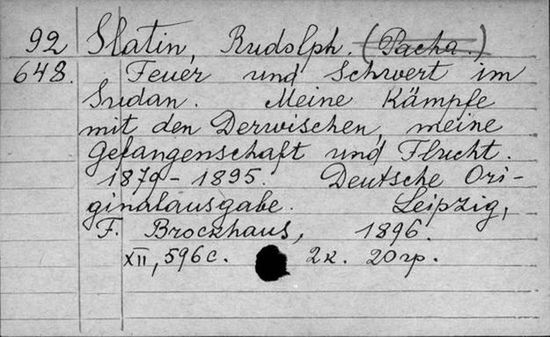 92 Slatin, Rudolph. (Pacha.)
648. Feuer und Schwert im
Sudan. Meine Kämpfe
mit den Derwischen, meine
Gefangenschaft und Flucht.
1879-1895. Deutsche Ori-
ginalausgabe. Leipzig,
F. Brockhaus, 1896.
XII, 596 с. 2 к. 20 гр.